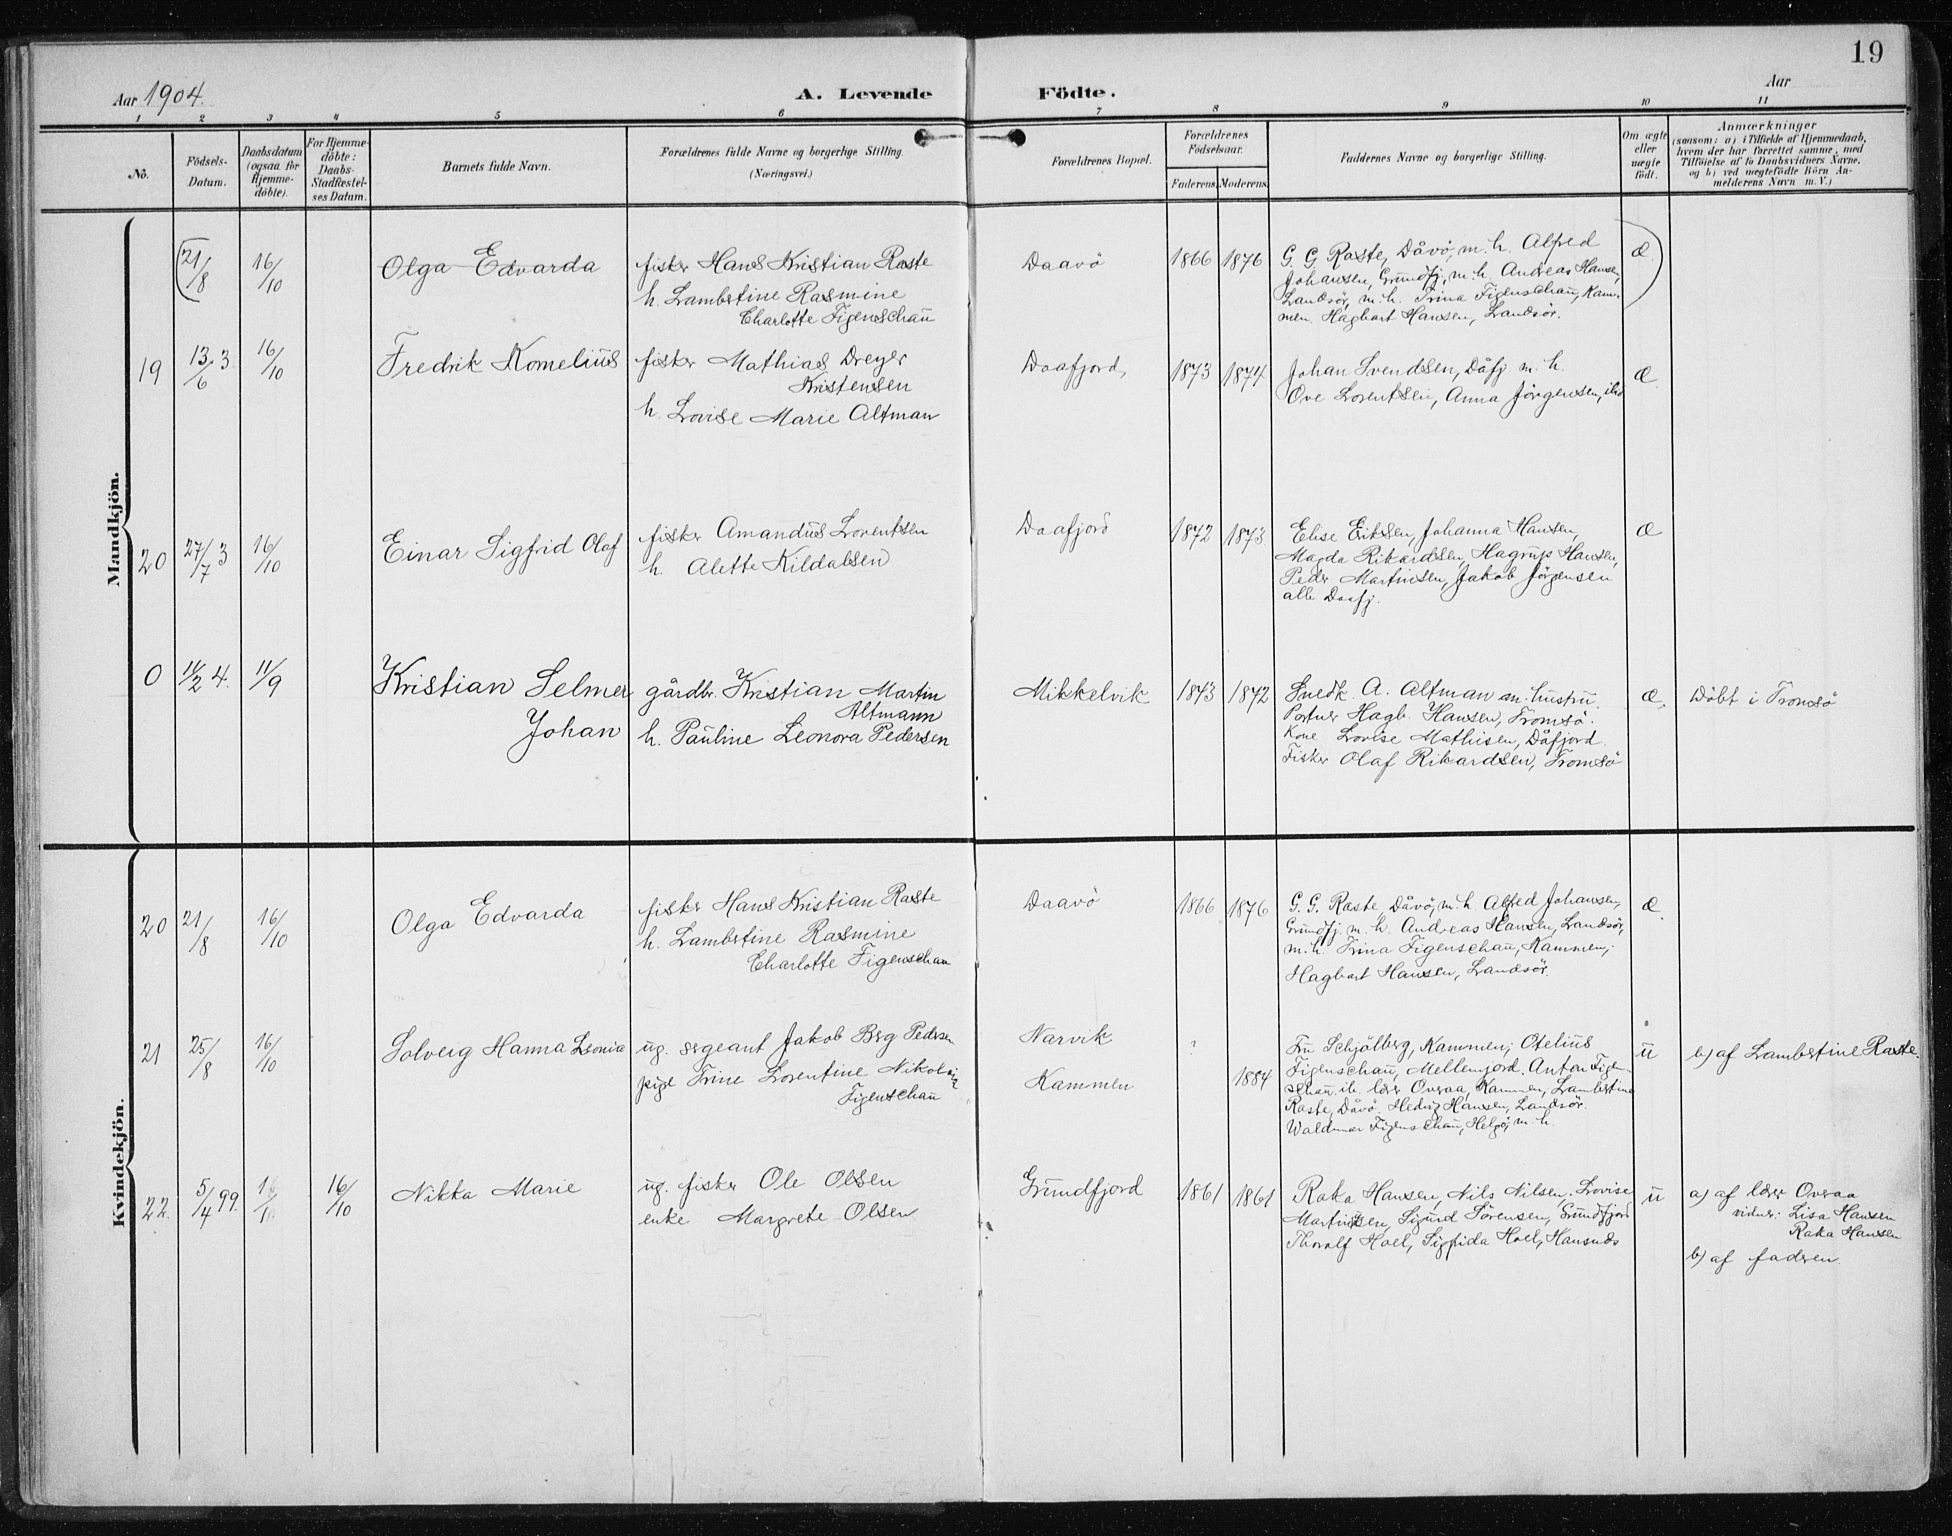 19
Aar 1904.
A. Levende Födte.
Aar
1 2 3 4 5 6 7 8 9 10 11
Nô.
Födsels-
Datum.
Daabsdatum
(ogsaa for
Hjemme-
döbte).
For Hjemme-
döbte:
Daabs-
Stadfæstel-
ses Datum.
Barnets fulde Navn.
Forældrenes fulde Navne og borgerlige Stilling.
(Næringsvei.)
Forældrenes Bopæl.
Forældrenes
Födselsaar.
Faderens. Moderens.
Faddernes Navne og borgerlige Stilling.
Om ægte
eller
uægte
födt.
Anmærkninger
(saasom: a) i Tilfælde af Hjemmedaab,
hvem der har forrettet samme, med
Tilföielse af to Daabsvidners Navne,
og b) ved uægtefödte Börn An-
melderens Navn m. V.)
Mandkjön.
21/8 16/10
Olga Edvarda
fisker Hans Kristian Raste
h. Lambertine Rasmine
Charlotte Figenschau
Daavö
1866 1876
G. G. Raste, Dåvö, m. h. Alfred
Johansen, Grundfj, m. h. Andreas Hansen,
Landsör, m. h. Trina Figenschau, Kam-
men. Hagbart Hansen, Landsör.
Æ.
19 13/6 3 16/10
Fredrik Kornelius
fisker Mathias Dreyer
Kristensen
h. Lovise Marie Altman
Daafjord,
1873 1874
Johan Svendsen, Dåfj. m. h.
Ove Lorentsen, Anna Jörgensen, ibid
Æ.
20 27/7 3 16/10
Einar Sigfrid Olaf
fisker Amandus Lorentsen
h. Alette Kildalsen
Daafjord
1872 1873
Elise Eriksen, Johanna Hansen,
Magda Rikardsen, Hagrup Hansen,
Peder Martinsen, Jakob Jörgensen
alle Daafj.
Æ
0 11/2 4. 11/9
Kristian Selmer
Johan
gårdbr. Kristian Martin
Altmann
h. Pauline Leonora Pedersen
Mikkelvik
1843 1872
Snedk. A. Altman m. hustru.
Portner Hagb. Hansen, Tromsö.
Kone Lovise Mathisen, Dåfjord
Fisker Olaf Rikardsen, Tromsö
Æ.
Döbt i Tromsö
Kvindekjön.
20 21/8 16/10
Olga Edvarda
fisker Hans Kristian Raste
h. Lambertine Rasmine
Charlotte Figenschau
Daavö
1866 1876
G. G. Raste Dåvö, m. h. Alfred Johansen,
Grundfj. m. h. Andreas Hansen, Landsör,
m. h. Trina Figenschau, Kammen;
Hagbart Hansen, Landsör.
Æ.
21 25/8 16/10
Solveig Hanna Leonia
ug. sergeant Jakob Berg Pedersen
pige Trine Lorentine Nikoline
Figenschau
Narvik
Kammen
?
1884
Fru Schjölberg, Kammen; Otelius
Figenschau, Mellemjord. Anton Figen-
schau ib. lærer Overaa, Kammen, Lambertine
Raste, Dåvö, Hedvig Hansen, Landsör.
Waldemar Figenschau, Helgö, m. h.
u
b) af Lambertine Raste.
22. 5/4 99. 16/10
Nikka Marie
ug. fisker Ole Olsen
enke Margrete Olsen
Grundfjord
1861 1861
Raka Hansen, Nils Nilsen, Lovise
Martinsen, Sigurd Sörensen, Grundfjord
Thoralf Hoel, Sigfrida Hoel, Hansnds
u
a) af lærer Overaa
vidner: Lisa Hansen
Raka Hansen
b) af faderen.